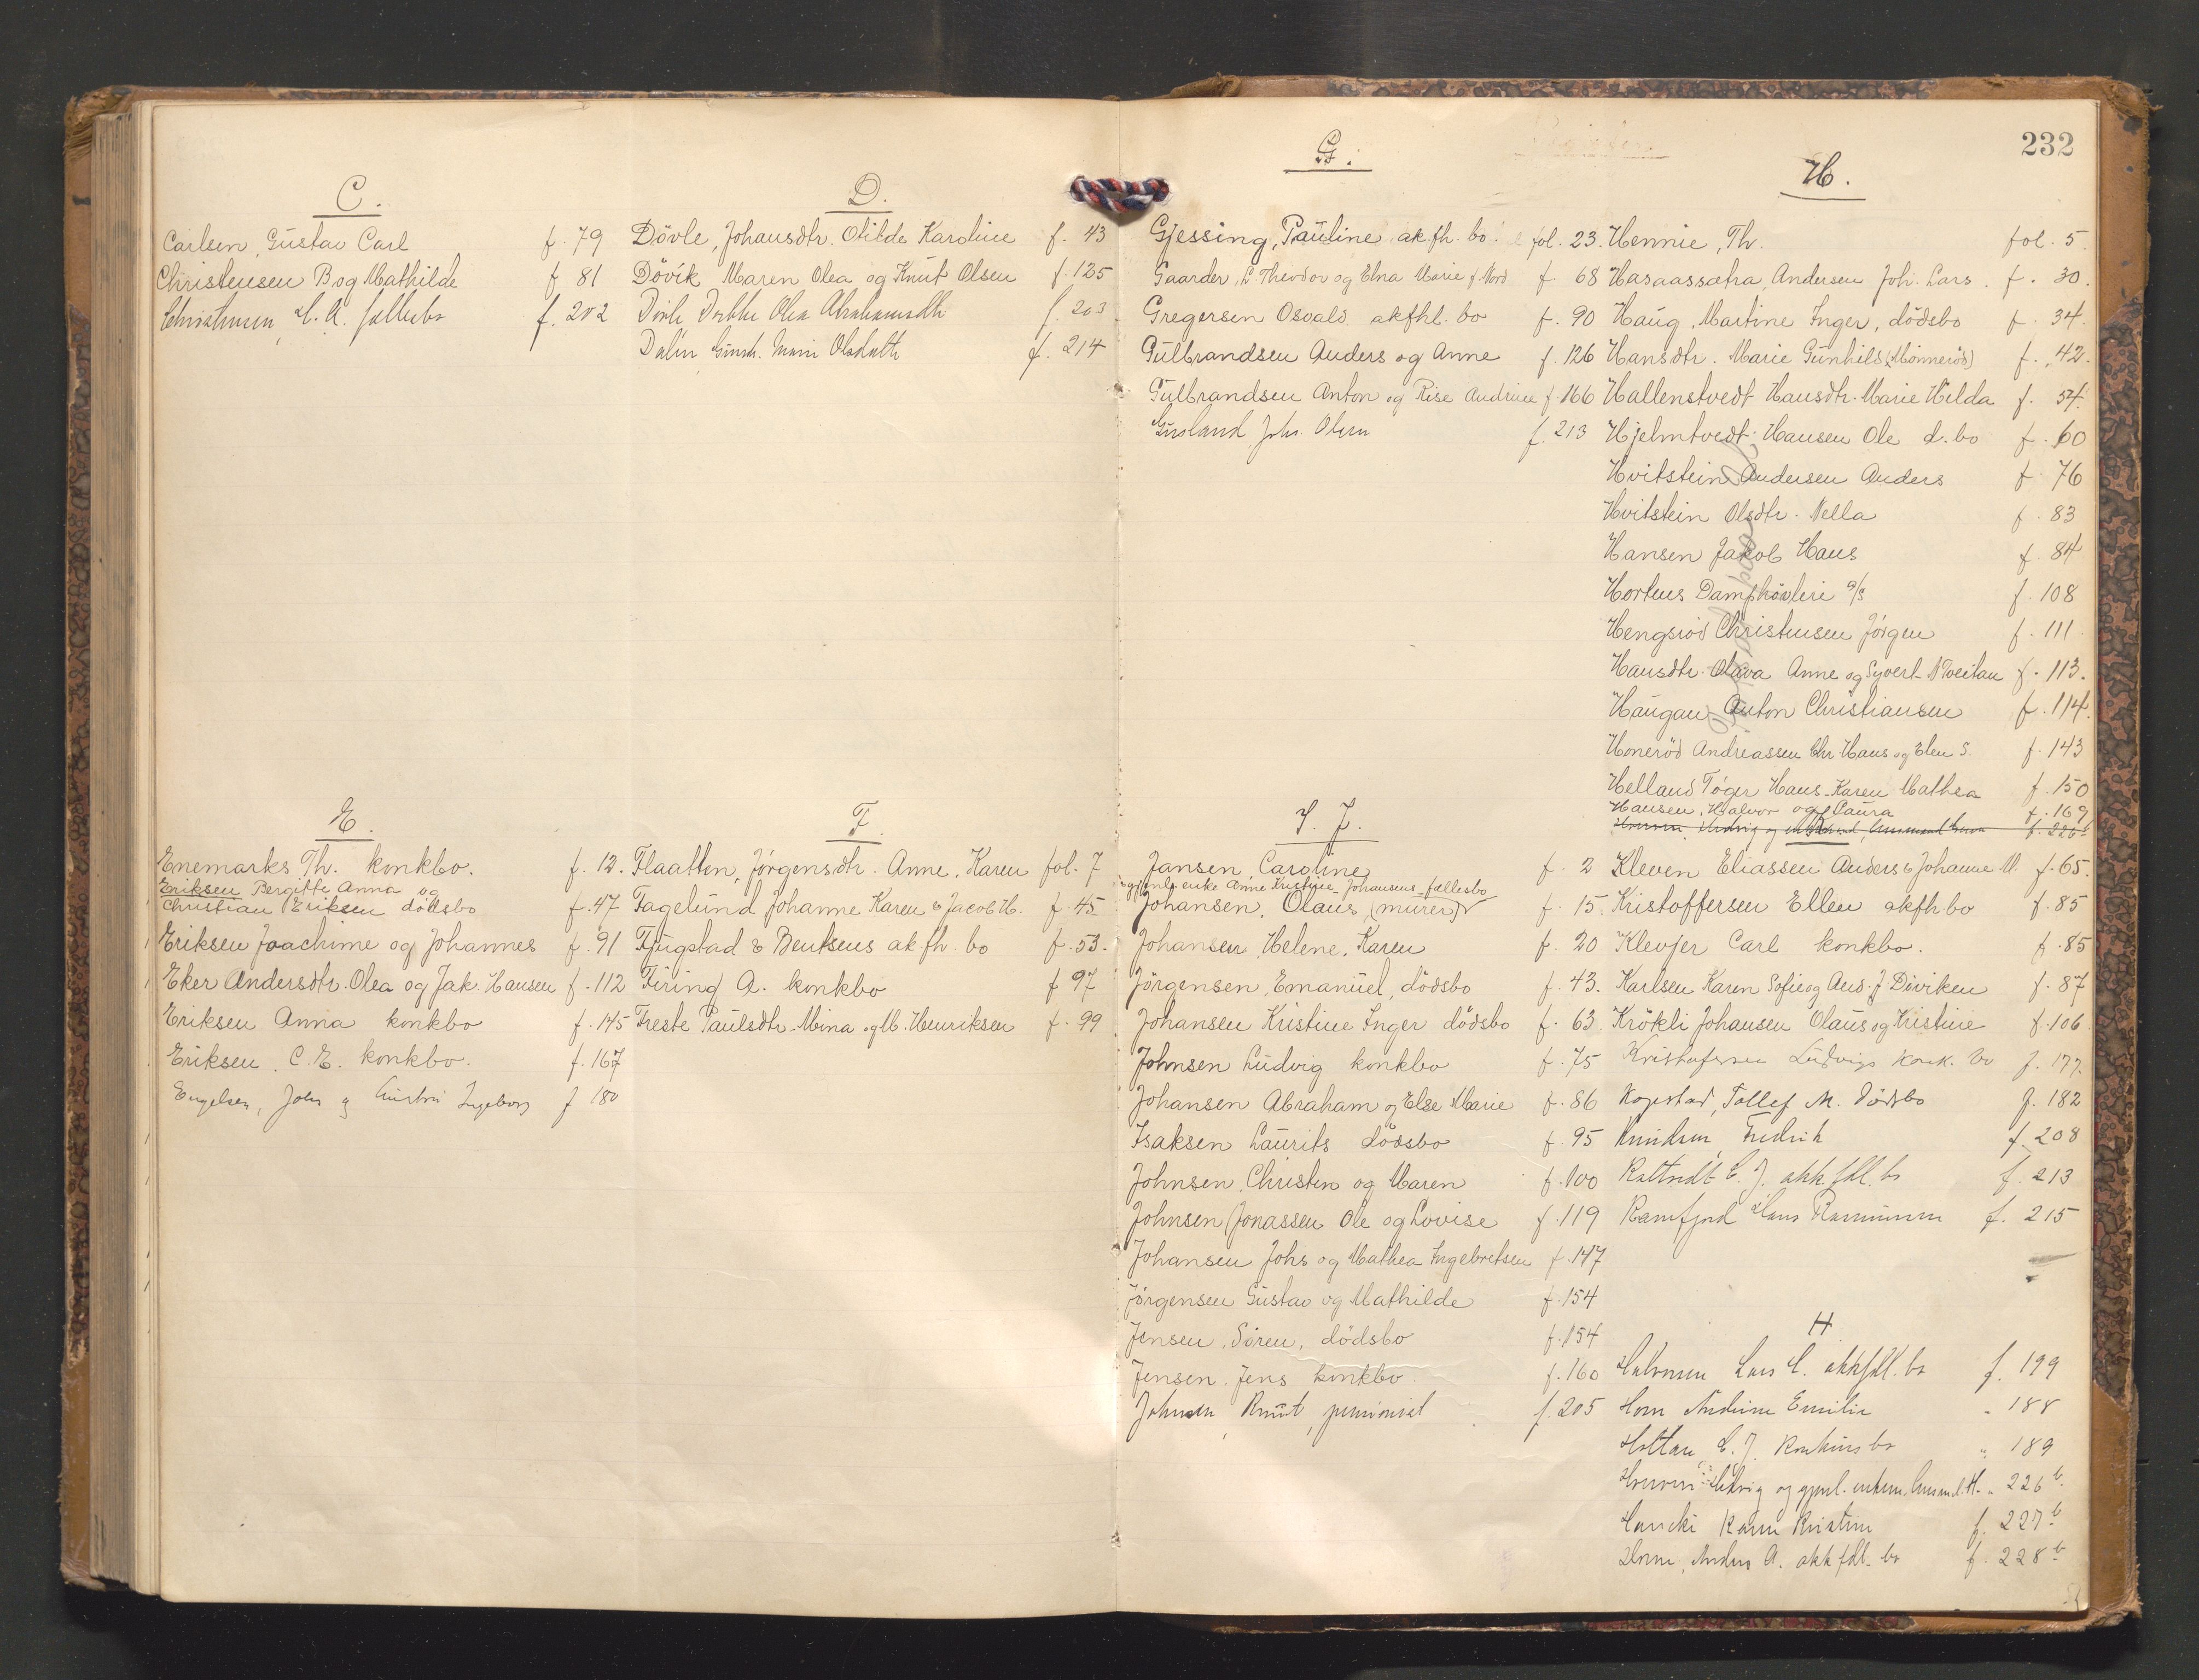 232
C.
Carlsen, Gustav Carl f. 79
Christensen B og Mathilde f 81
Christensen, H. A. fællesbo f. 202
D.
Dövle, Johansdtr. Otilde Karoline f. 43
Dövik Maren Olea og Knut Olsen f. 125
Dövle Dorthe Olea Abrahamsdtr f. 203
Dalin Gunh. Marie Olsdatter f. 214
E.
Enemarks Th. konkbo. f. 12.
Eriksen Bergitte Anna og
Christian Eriksen dödsbo f. 47
Eriksen Joachime og Johannes f. 91
Eker Andersdtr. Olea og Jak. Hansen f. 112
Eriksen Anna konkbo f. 145
Eriksen C. E. konkbo. f. 167
Engelsen, John g Ingeborg f 180
F.
Flaatten, Jörgensdtr. Anne, Karen fol. 7
Fagelund Johanne Karen & Jacob H. f. 45
Fjugstad & Bentsens akfh. bo f. 53.
Firing A. konkbo f 97
Freste Paulsdtr. Mina og M. Henriksen f. 99
G.
Gjessing, Pauline akfh. bo. fol. 23.
Gaarder, L Theodor og Elna Marie f. Nord f. 68
Gregersen Osvald akfhl. bo f. 90
Gulbrandsen Anders og Anne f. 126
Gulbrandsen Anton og Rise Andrine f. 166
Gusland Johs. Olsen f. 213
H.
Hennie, Th. fol. 5
Hasaassætra, Andersen Joh. Lars. f. 30.
Haug, Martine Inger, dödsbo f. 34.
Hansdtr. Marie Gunhild (Mönneröd) f. 42.
Hallenstvedt Hansdtr. Marie Hilda f. 54.
Hjelmtvedt Hansen Ole d. bo f. 60
Hvitstein Andersen Anders f. 76
Hvitstein Olsdtr. Nella f. 83
Hansen Jakob Hans f. 84
Hortens Damphövleri a/s f. 108
Hengsröd Christensen Jörgen f. 111
Hansdtr. Olava Anne og Syvert N Tveitan f. 113.
Haugan Anton Christiansen f. 114.
Honeröd Andreassen Chr. Hans og Elen S. f. 143
Helland Töger Hans - Karen Mathea f. 150
Hansen, Halvor og Laura f. 169
I. J.
Jansen, Caroline f. 2
og enke Anne Kristine Johansens fællesbo
Johansen, Olaus (murer) f. 15.
Johansen, Helene, Karen f. 20
Jörgensen, Emanuel, dödsbo f. 43.
Johansen Kristine Inger dödsbo f. 63.
Johnsen Ludvig konkbo f. 75
Johansen Abraham og Else Marie f. 86
Isaksen Laurits dödsbo f. 95
Johnsen, Christen og Maren f. 100
Johnsen (Jonassen Ole og Lovise f. 119
Johansen Johs og Mathea Ingebretsen f. 147
Jörgensen Gustav og Mathilde f. 154
Jensen, Sören, dödsbo f. 154
Jensen. Jens konkbo. f. 160
Johnsen, Knut, pensionist f. 205
Kleven Eliassen Anders & Johanne M. f. 65.
Kristoffersen Ellen akfh. bo f. 85
Klevjer Carl konkbo. f. 85
Karlsen Karen Sofie og And. J Döviken f. 87
Krökli Johansen Olaus og Kristine f. 106
Kristofersen Ludvigs konk. bo f. 177.
Kopstad, Tollef M. Dödsbo f. 182
Knudsen, Fredrik f. 208
Kattvedt E. J. akkfdl. bo f. 213
Ramfjord Hans Rasmussen f. 215
H
Halvorsen Lars E. akkfdl. bo f. 199
Horn Andrine Emilie " 188
Holtan E. J. konkurs bo " 189
Hedvig og gjenl. " 226 b.
Karen Kristine f. 227 b
Anders A. akkfdl. bo f. 228 b